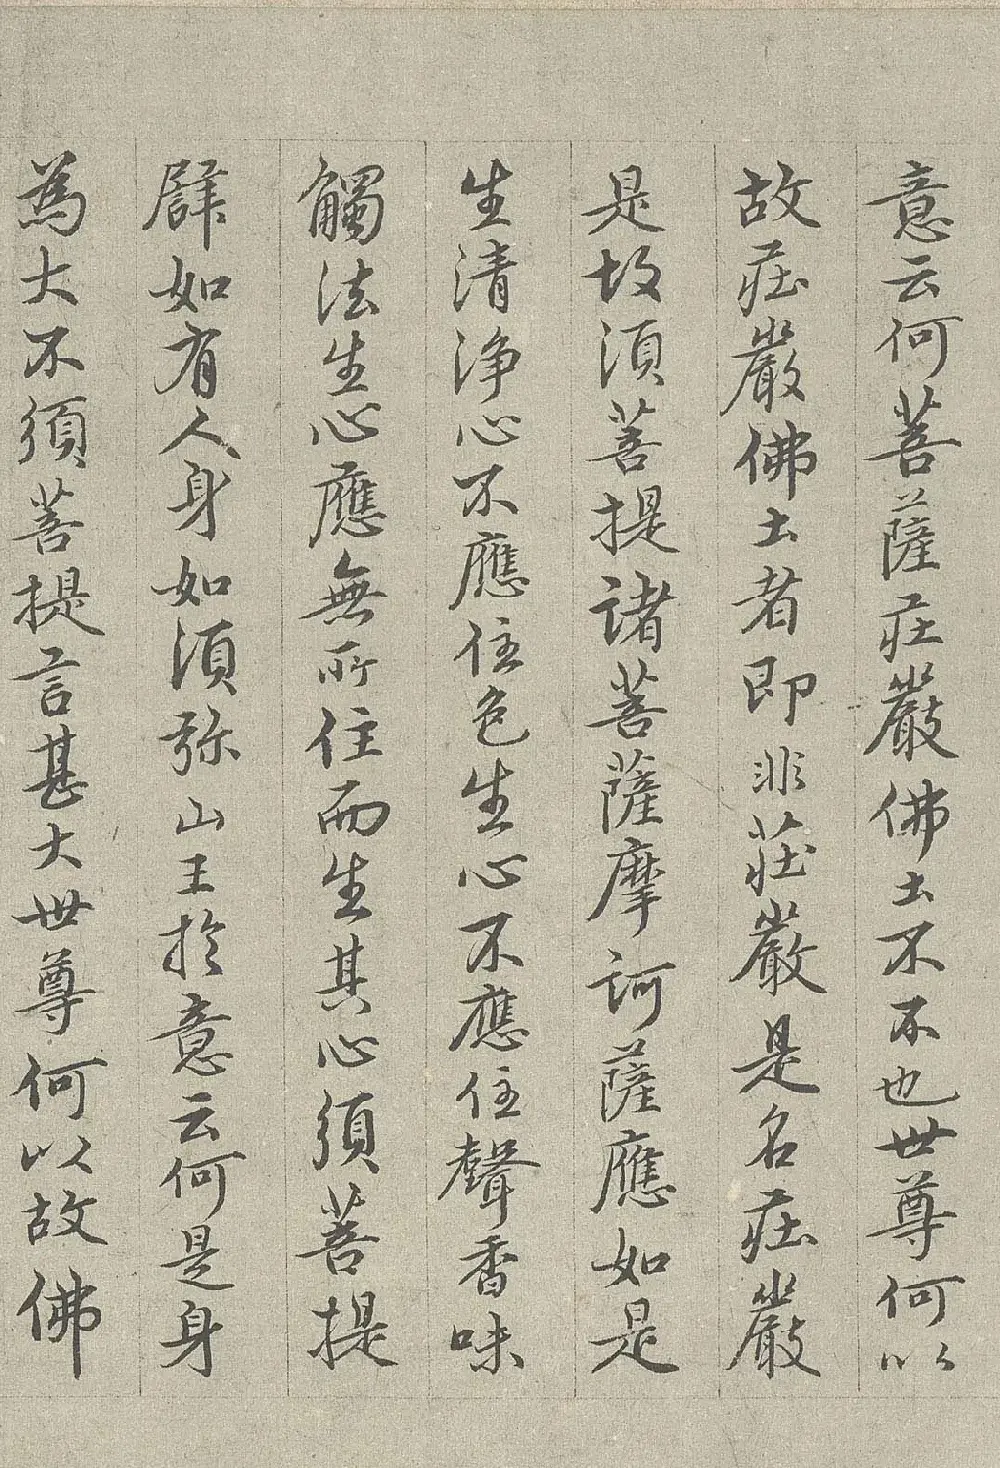 意云何菩薩莊嚴佛土不不也世尊何以
故莊嚴佛土者即非莊嚴是名莊嚴
是故須菩提諸菩薩摩訶薩應如是
生清淨心不應住色生心不應住聲香味
觸法生心應無所住而生其心須菩提
辟如有人身如須弥山王於意云何是身
為大不須菩提言甚大世尊何以故佛